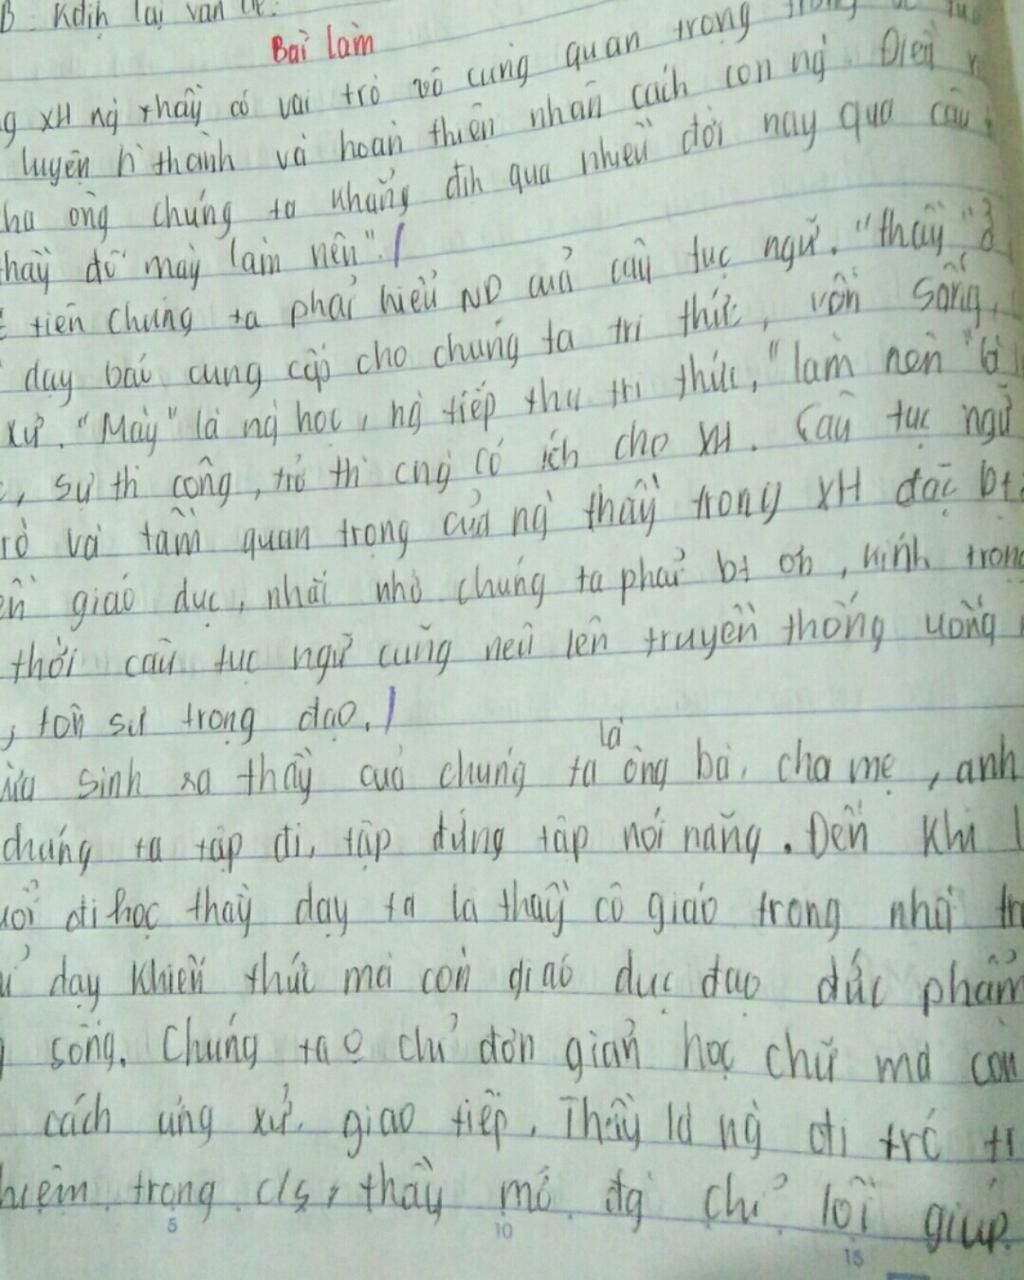 B: Kđịh lại vấn đề.
Bài làm
g XH ng` thầy có vai trò vô cùng quan trọng trong
luyện h` thành và hoàn thiện nhân cách con ng`. Điều
cha ông chúng ta khẳng địh qua nhiều đời nay qua câu
thầy đố mày làm nên".
tiên chúng ta phải hiểu ND của câu tục ngữ. "thầy" ở
dạy bảo, cung cấp cho chúng ta tri thức, vốn sống,
xử. "Mày" là ng` học, ng` tiếp thu tri thức, "làm nên" là
, sự th` công, trở th` cng` có ích cho XH. Câu tục ngữ
rò và tầm quan trọng của ng` thầy trong XH đặc bt
ền giáo dục, nhắc nhở chúng ta phải bt ơn, kính trọng
thời câu tục ngữ cũng nêu lên truyền thống uống
, tôn sư trọng đạo.
ừa sinh ra thầy của chúng ta là ông bà, cha mẹ, anh
chúng ta tập đi, tập đứng tập nói năng. Đến khi l
uổi đi học thầy dạy ta là thầy cô giáo trong nhà tr
ỉ dạy khiến thức mà còn giáo dục đạo đức phẩm
sống. Chúng ta o chỉ đơn giản học chữ mà còn
cách ứng xử, giao tiếp. Thầy là ng` đi trc tr
hiệm trong c/s, thầy mở đg` chỉ lối giúp
5 10 15